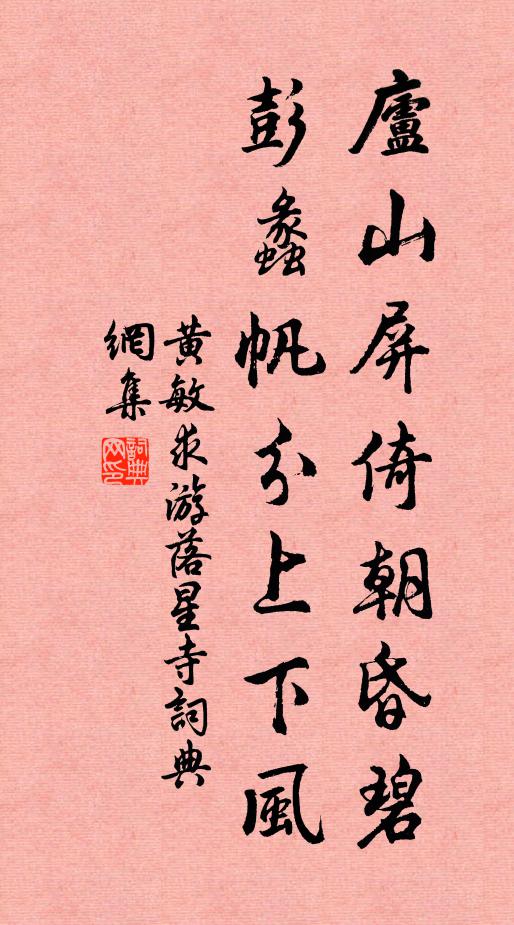 廬山屏倚朝昏碧
彭蠡帆分上下風
黃敏求游落星寺詞典
網集
詞典
网印